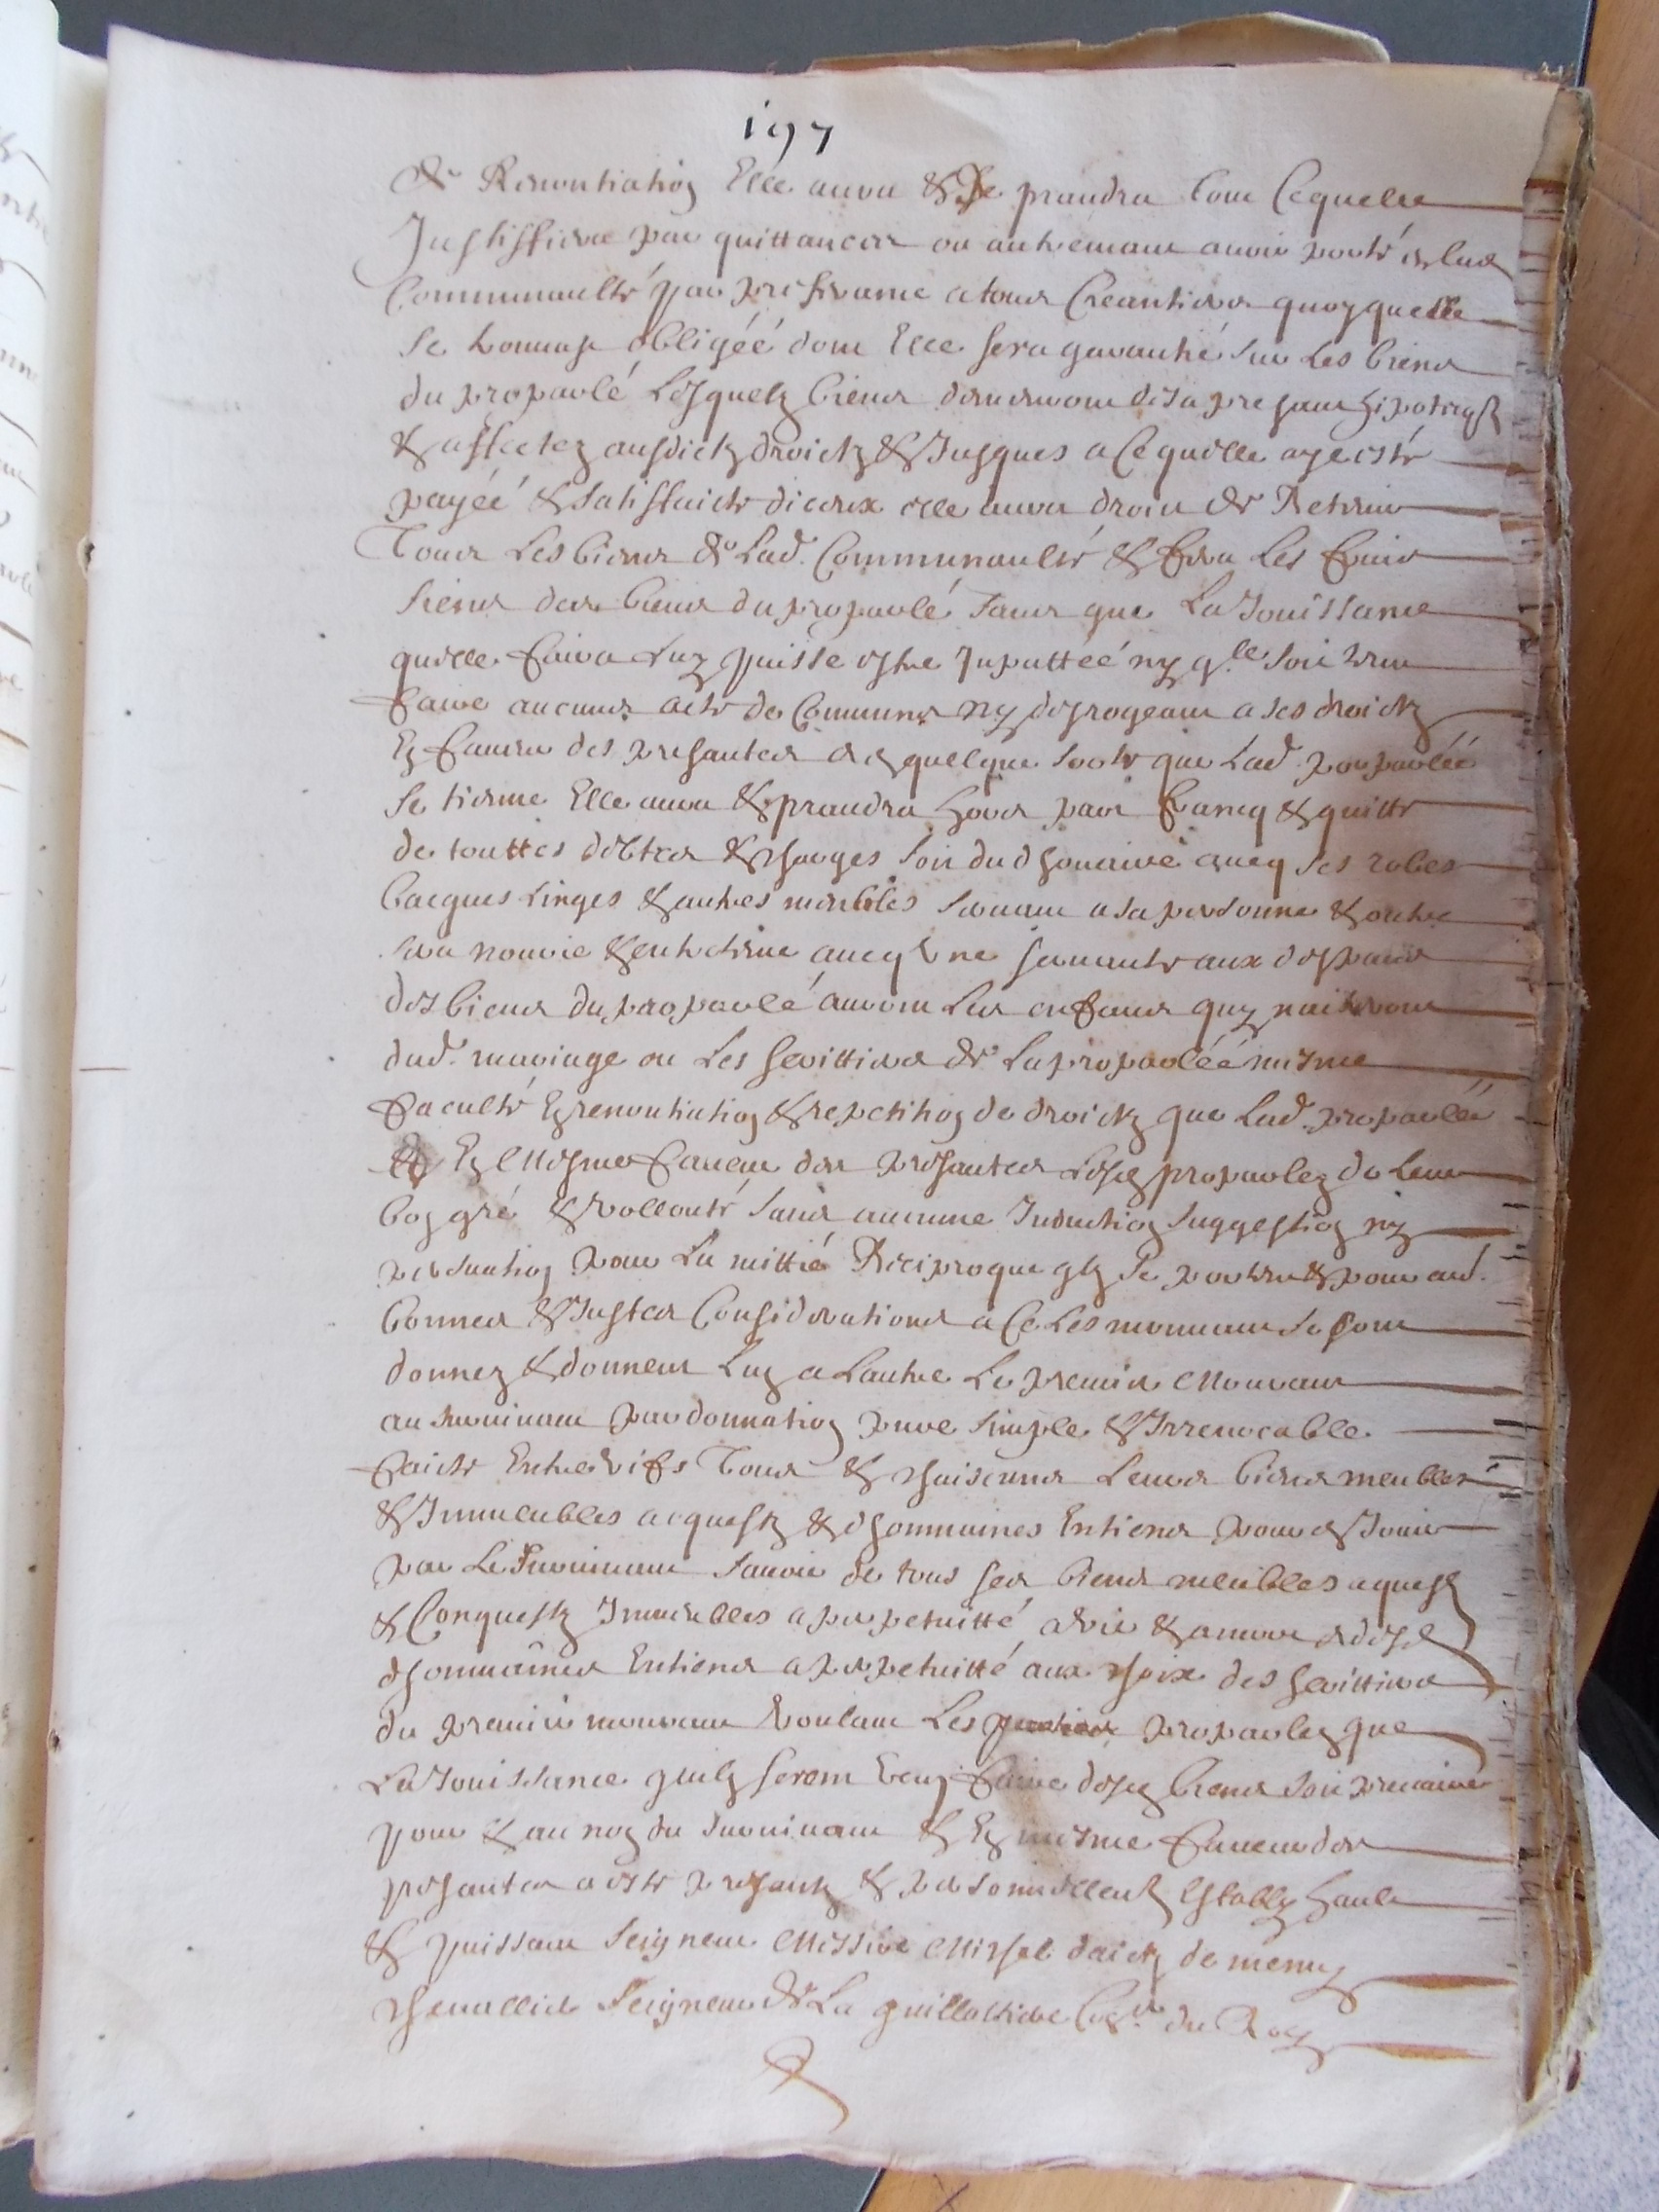 197
de Renontiation Elle aura & Se prandra tout Cequelle
Justiffiera par quittances ou autrement avoir porté en lad
Communaulté par preferance a tous Creantiers quoy quelle
se trouvast obligéé dont Elle sera garantie sur les biens
du proparlé lesquelz biens demeureront des a presant hipotequez
& affectez ausdictz droictz & Jusques a Ce quelle aye esté
payéé & satisffaicte diceux elle aura droict de Retenir
Tous les biens de lad. Communaulté & fera les fruis
siens des biens du proparlé sans que la Jouissance
quelle faira luy puisse estre Inputtéé ny q.lle soit
faire aucuns acte de Commune ny desrogeant a ses droictz
En faveur des presantes & en quelque sorte que lad. proparléé
se tienne Elle aura & prandra hors part francq & quitte
de touttes debtes & charges soit du dhouaire avecq ses robes
bacques linges & autres meubles servant a sa personne & outre
sera nourie & entretenue avecq une servante aux despans
des biens du proparlé auront les enfans quy naitront
dud. mariage ou les heritiers de la proparléé mesme
faculté En renontiation & repetition de droictz que lad. proparléé
& En Mesme faveur des presantes lesd proparlez de leur
bon gré & vollonté sans aucune Induction suggestion ny
persuation pour la mittié Reciproque qlz se portent & pour aud.
bonnes & Justes Considerations a Ce les mouvant se sont
donnez & donnent Lun a Lautre Le premier Mourant
au survivant par donnation pure simple & Irrevocable
faicte Entre vifs Tous & chaiscuns Leurs biens meubles
& Immeubles acquestz & dhommaines Entiens pour en Jouir
par Le Survivant savoir de tous ses biens meubles aquestz
& Conquestz Immeubles a perpetuitté a vie & a mort & desd
dhommaines Entiens a perpetuitté aux choix des heritiers
du premier mourant voulant Les proparlez que
La Jouissance quilz seront faire desd biens soit precaire
pour & au nom du survivant & En mesme faveur des
presantes a esté presant & personnellement Estably hault
& puissant seigneur Messire Michel daictz de mesmy
chevallier seigneur de La guillottiere Con.er du Roy